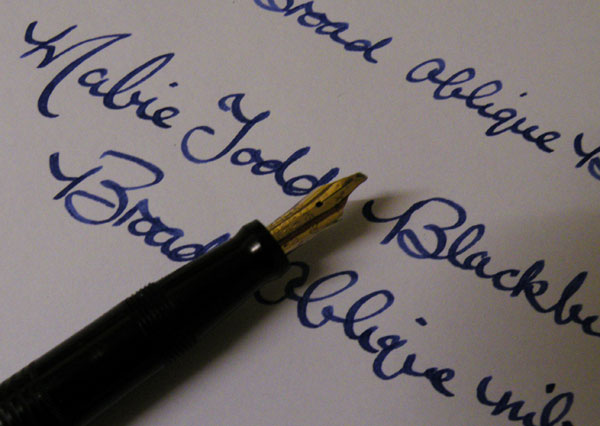 Broad oblique
Mabie Todd Blackb
Broad Oblique nib